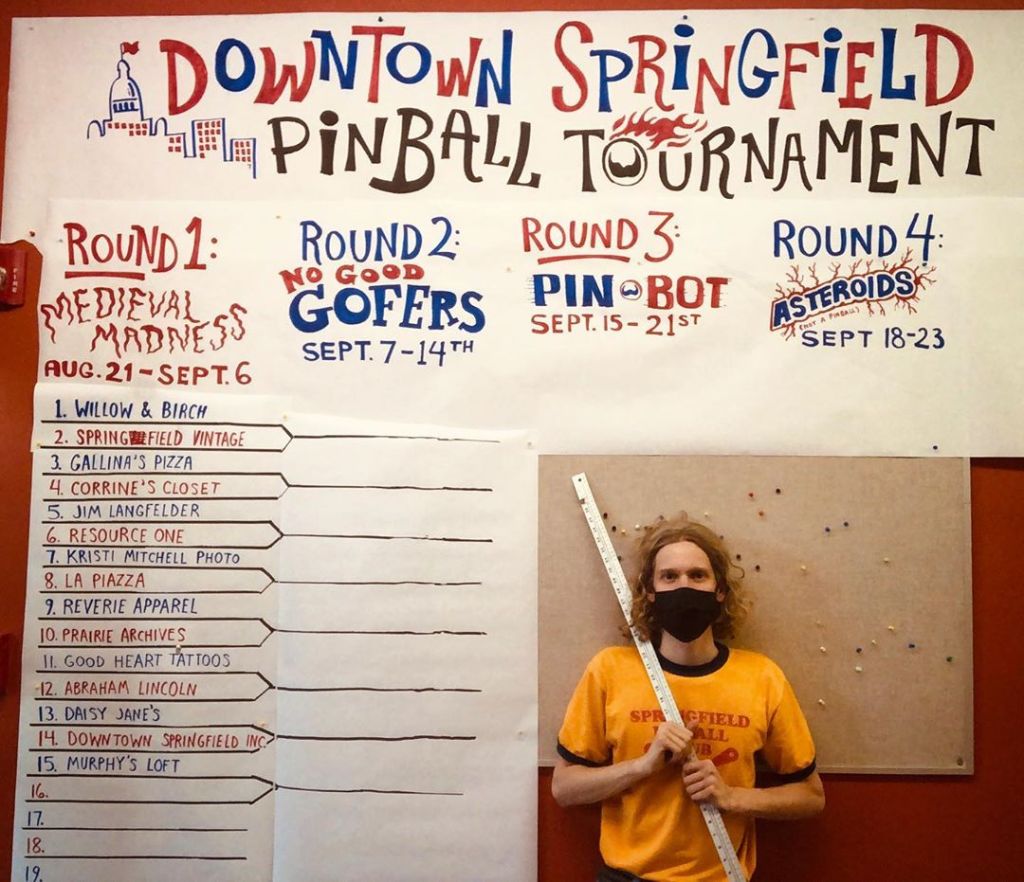 DOWNTOWN SPRINGFIELD
PINBALL TOURNAMENT
ROUND 1:
MEDIEVAL
MADNESS
AUG. 21 - SEPT. 6
ROUND 2:
NO GOOD
GOFERS
SEPT. 7-14TH
ROUND 3:
PIN BOT
SEPT. 15-21ST
ROUND 4:
ASTEROIDS
(NOT A PINBALL)
SEPT 18-23
FIRE
1. WILLOW & BIRCH
2. SPRINGFIELD VINTAGE
3. GALLINA'S PIZZA
4. CORRINE'S CLOSET
5. JIM LANGFELDER
6. RESOURCE ONE
7. KRISTI MITCHELL PHOTO
8. LA PIAZZA
9. REVERIE APPAREL
10. PRAIRIE ARCHIVES
11. GOOD HEART TATTOOS
12. ABRAHAM LINCOLN
13. DAISY JANE'S
14. DOWNTOWN SPRINGFIELD INC.
15. MURPHY'S LOFT
16.
17.
18.
19.
SPRINGFIELD